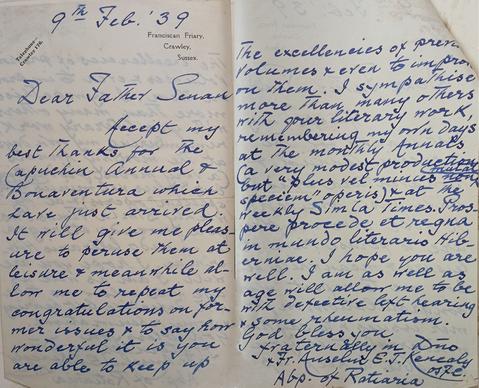 9th Feb. '39
Telephone:
Crawley 176.
Franciscan Friary,
Crawley,
Sussex.
Dear Father Senan
Accept my
best thanks for the
Capuchin Annual &
Bonaventura which
have just arrived.
It will give me pleas-
ure to peruse them at
leisure & meanwhile al-
low me to repeat my
congratulations on for-
mer issues & to say how
wonderful it is you
are able to keep up
the excellencies of prev
volumes & even to impro
on them. I sympathise
more than many others
with your literary work,
remembering my own days
at the monthly Annals
(a very modest production
but plus vel minus
speciem operis) & at the
weekly Simla Times. Pros-
pere procede et regna
in mundo literario Hib-
erniae. I hope you are
well. I am as well as
age will allow me to be
with defective left hearing
& some rheumatism.
God bless you,
Fraternally in Dno
+ Fr. Anselm E.J. Kenealy
osfc.
Abp. of Ratiaria